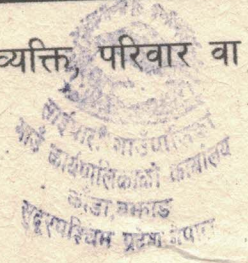 व्यक्ति, परिवार वा
साईपाल गाउँपालिका
गाउँ कार्यपालिकाको कार्यालय
काँडा, बझाङ
सुदूरपश्चिम प्रदेश, नेपाल